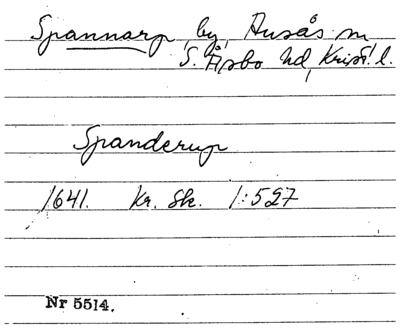 Spannarp, by, Ausås sn
S. Åsbo hd, Krist. l.
Spanderup
1641. Kr. Sk. 1:527
Nr 5514.